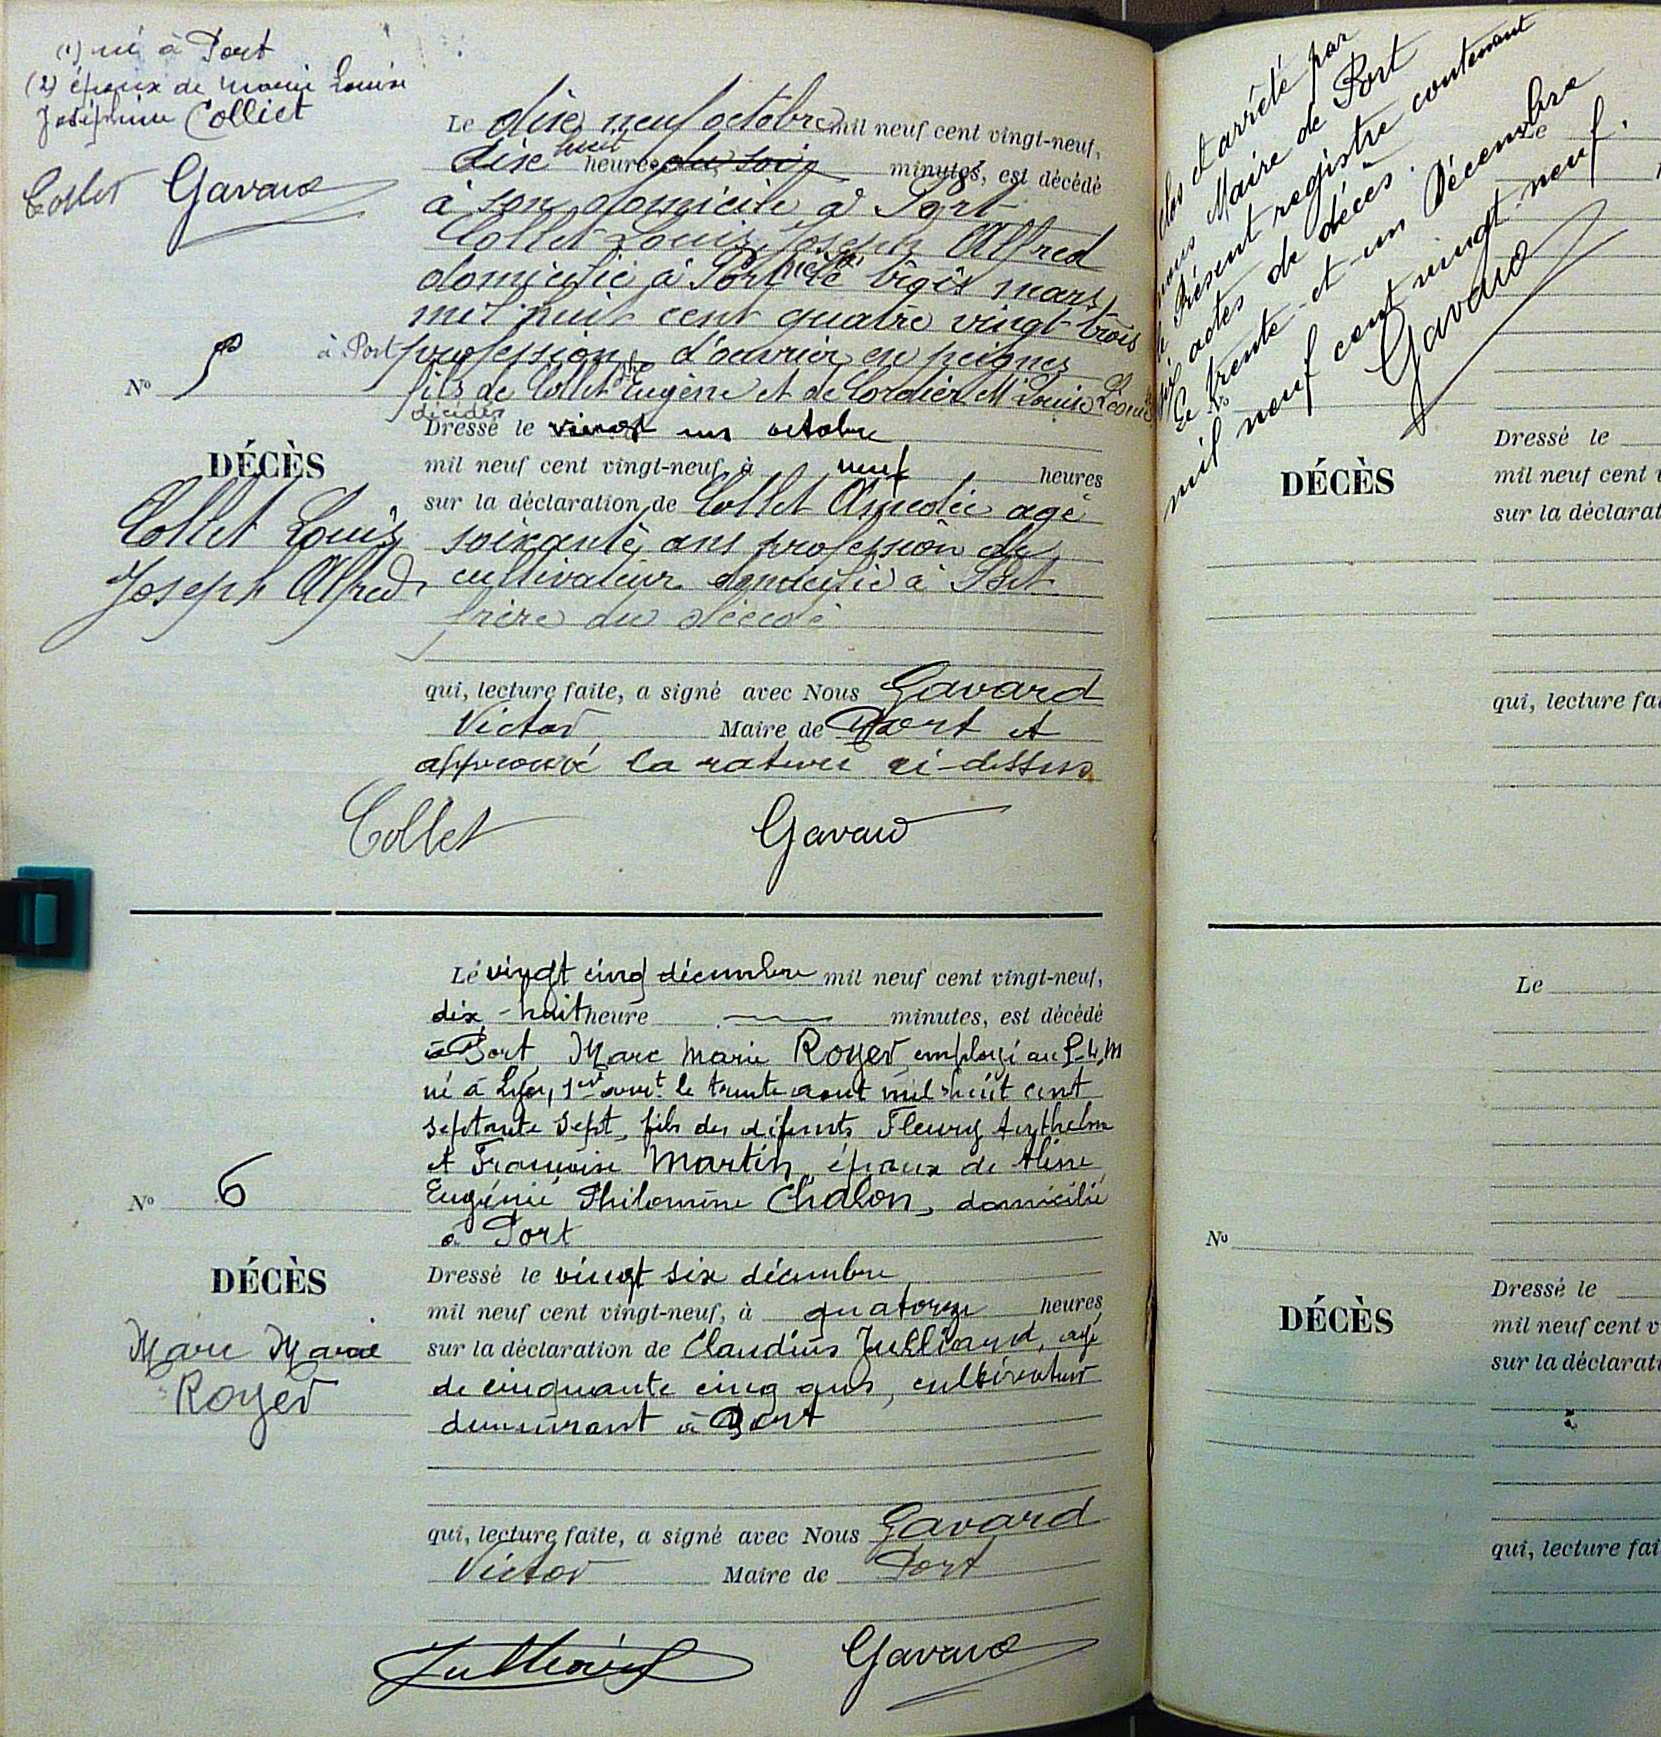 (1) né à Port
(2) époux de Marie Louise
Joséphine Colliet
Collet Gavard
Le dixe neuf octobre mil neuf cent vingt-neuf,
dixe huit heures du soir minutes, est décédé
à son domicile à Port
Collet Louis Joseph Alfred
domicilié à Port né le mars
mil huit cent quatre vingt trois
à Port profession d'ouvrier en peignes
fils de Collet Eugène et de Cordier Mie Louise
décédés
N° 5
Dressé le vingt un octobre
DÉCÈS
mil neuf cent vingt-neuf, à neuf heures
sur la déclaration de Collet Amedée agé
Collet Louis
Joseph Alfred
soixante ans profession de
cultivateur domicilié à Port
frère du décédé
qui, lecture faite, a signé avec Nous Gavard
Victor Maire de Port et
approuvé la rature ci-dessus
Collet Gavard
Le vingt cinq décembre mil neuf cent vingt-neuf,
dix-huit heure minutes, est décédé
à Port Marc Marie Royer employé au P.L.M
né à Lyon, 1er arrt le trente aout mil huit cent
septante sept, fils des défunts Fleury Anthelme
et Françoise Martin, époux de Aline
Eugénie Philomène Chalon, domicilié
à Port
N° 6
DÉCÈS
Marc Marie
Royer
Dressé le vingt six décembre
mil neuf cent vingt-neuf, à quatorze heures
sur la déclaration de Claudius Julliard, agé
de cinquante cinq ans, cultivateur
demeurant à Port
qui, lecture faite, a signé avec Nous Gavard
Victor Maire de Port
Julliard Gavard
Clos et arrêté par
nous Maire de Port
le Présent registre contenant
six actes de décès.
Le trente-et-un Décembre
mil neuf cent vingt neuf.
Gavard
Le
N°
DÉCÈS
Dressé le
mil neuf cent v
sur la déclarat
qui, lecture fai
Le
N°
DÉCÈS
Dressé le
mil neuf cent v
sur la déclarati
qui, lecture fai